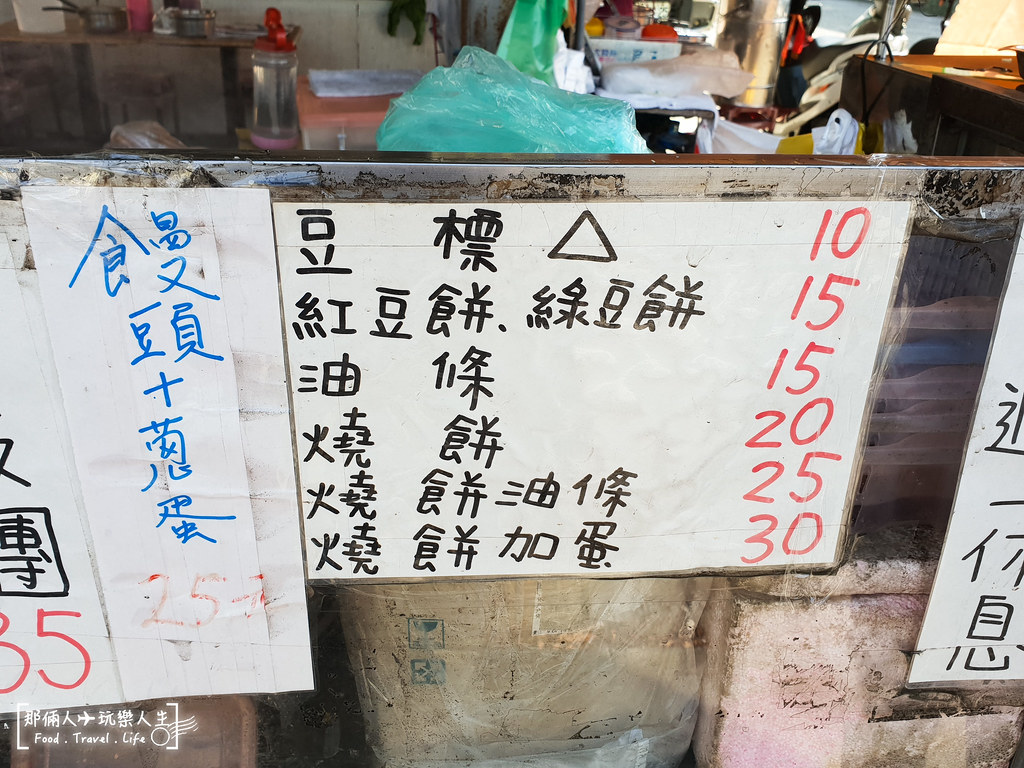 豆標△ 10
紅豆餅、綠豆餅 15
油條 15
燒餅 20
燒餅油條 25
燒餅加蛋 30
饅頭十蔥蛋
25
團
35
週一休息
那倆人玩樂人生
Food . Travel . Life